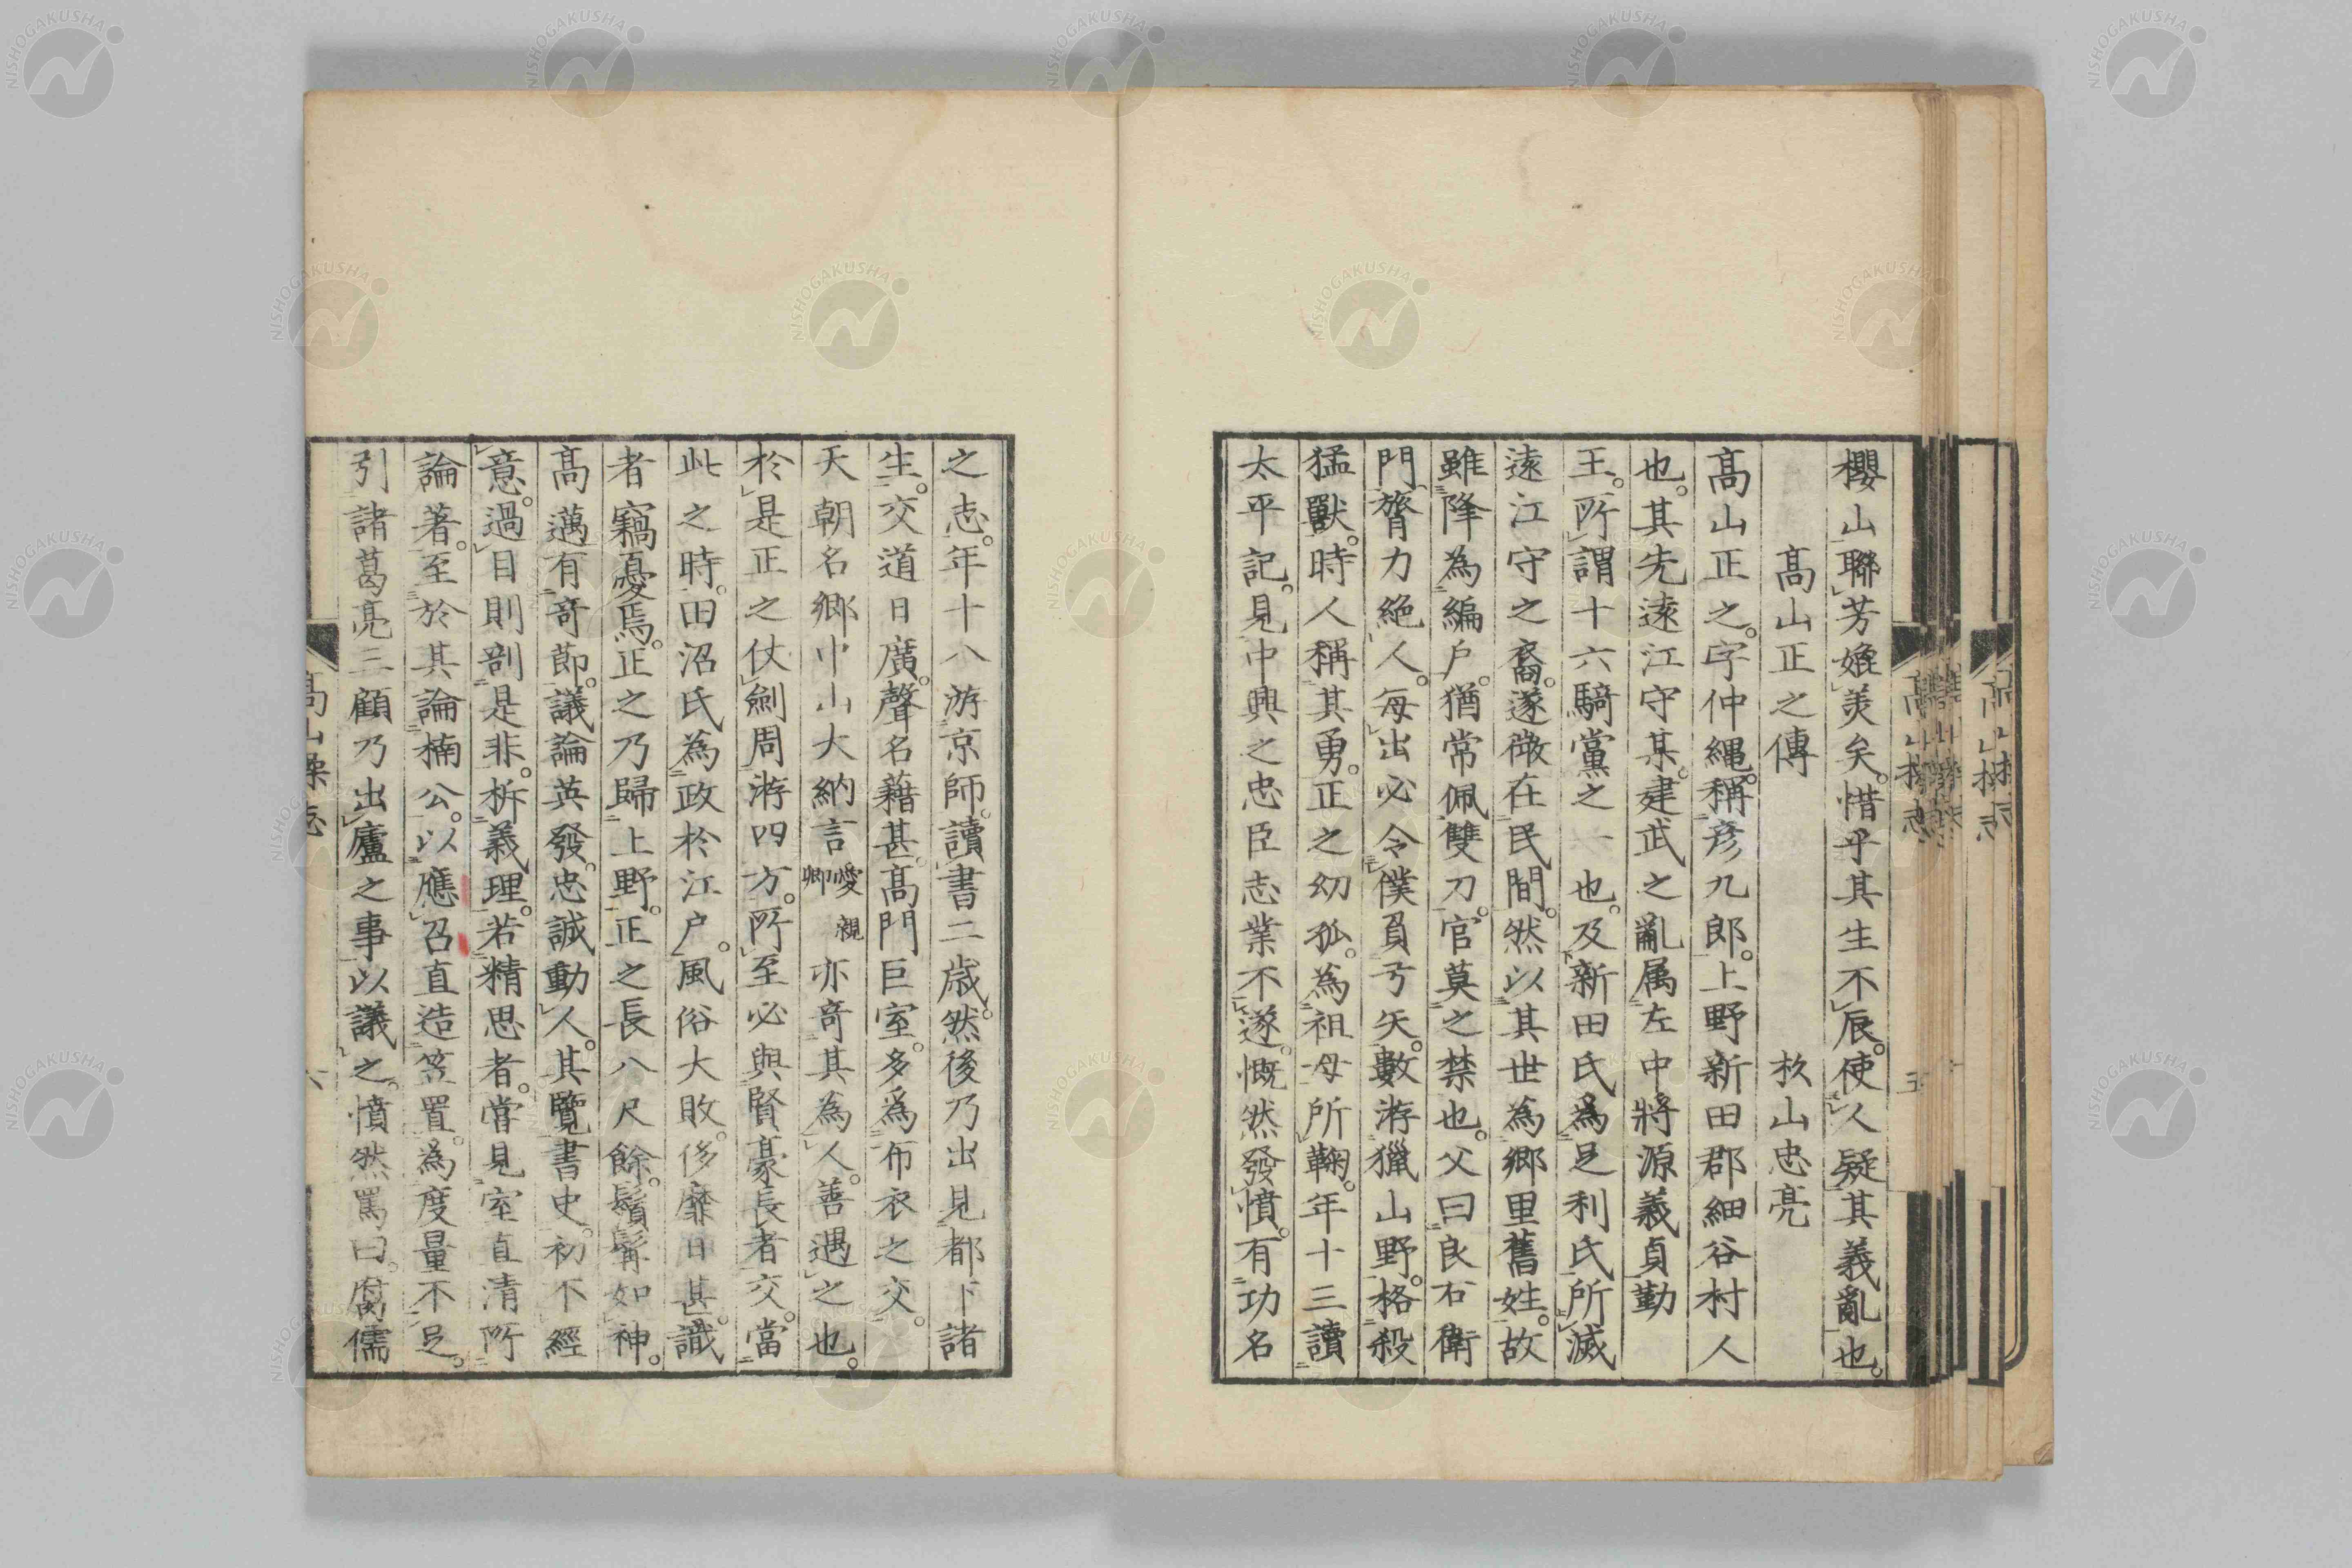 櫻山聯芳媲美矣。惜乎其生不辰。使人疑其義亂也。
高山正之傳　杉山忠亮
高山正之。字仲繩。稱彦九郎。上野新田郡細谷村人
也。其先遠江守某。建武之亂属左中將源義貞勤
王。所謂十六騎黨之一也。及新田氏為足利氏所滅
遠江守之裔。遂微在民間。然以其世為鄉里舊姓。故
雖降為編戶。猶常佩雙刀。官莫之禁也。父曰良右衛
門。膂力絶人。每出必令僕負弓矢。數游獵山野。格殺
猛獸。時人稱其勇。正之幼孤。為祖母所鞠。年十三讀
太平記。見中興之忠臣志業不遂。慨然發憤。有功名
之志。年十八游京師。讀書二歲。然後乃出見都下諸
生。交道日廣。聲名藉甚。高門巨室。多為布衣之交。
天朝名鄉中山大納言愛親卿亦奇其為人。善遇之也。
於是正之仗劍周游四方。所至必與賢豪長者交。當
此之時。田沼氏為政於江戶。風俗大敗。侈靡日甚。識
者竊憂焉。正之乃歸上野。正之長八尺餘。鬚髯如神。
高邁有奇節。議論英發。忠誠動人。其覽書史。初不經
意。過目則剖是非。析義理。若精思者。嘗見室直清所
論著。至於其論楠公。以應召直造笠置。為度量不足。
引諸葛亮三顧乃出廬之事以議之。憤然罵曰。腐儒
高山操志
六
五
NISHOGAKUSHA